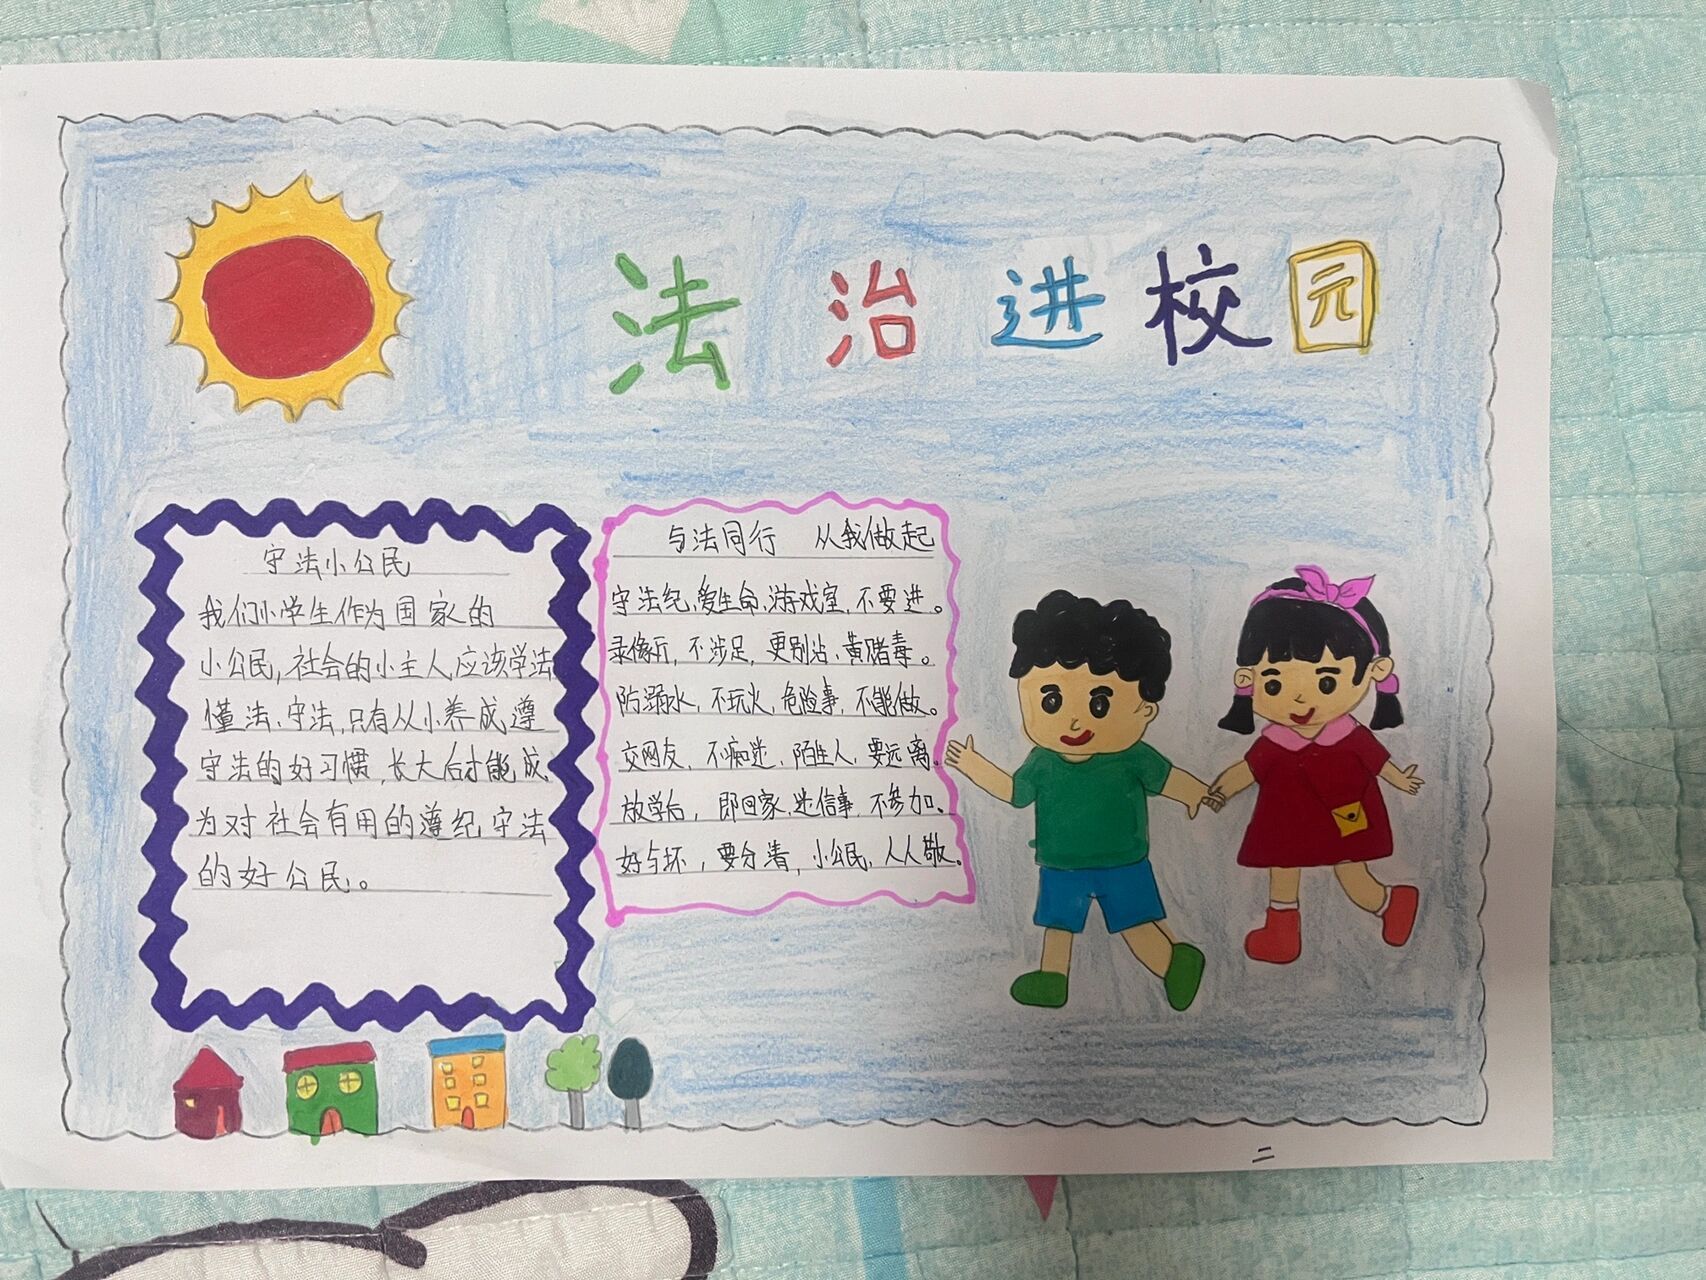 法治进校园
守法小公民
我们小学生作为国家的
小公民,社会的小主人应该学法
懂法、守法,只有从小养成遵
守法的好习惯,长大后才能成
为对社会有用的遵纪守法
的好公民。
与法同行 从我做起
守法纪,爱生命,游戏室,不要进。
录像厅,不涉足,更别沾,黄赌毒。
防溺水,不玩火,危险事,不能做。
交网友,不痴迷,陌生人,要远离。
放学后,即回家,迷信事,不参加、
好与坏,要分清,小公民,人人敬。
二